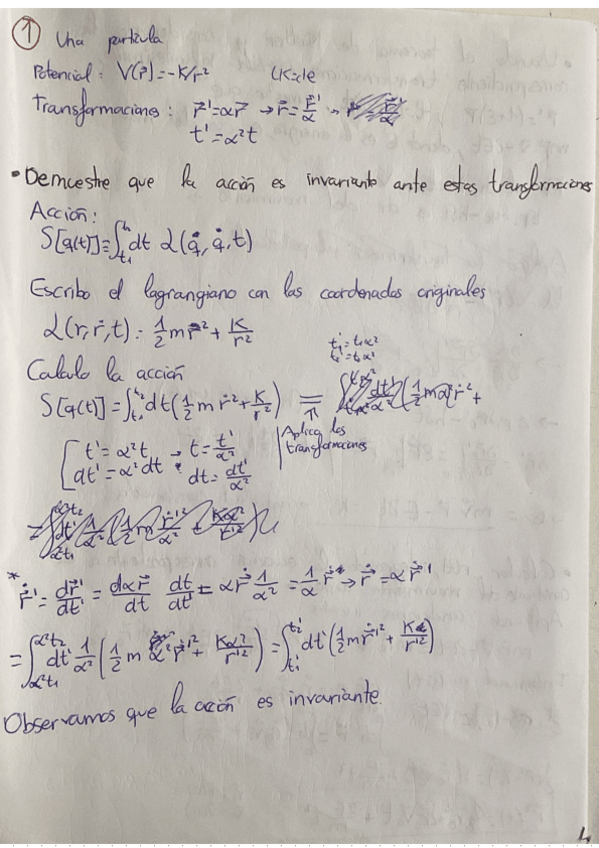 ① Una partícula
Potencial: V(r⃗)=-K/r²
Transformaciones: r⃗'=αr⃗ → r⃗=r⃗'/α
t'=α²t
• Demuestre que la acción es invariante ante estas transformaciones
Acción:
S[q(t)]=∫_{t₁}^{t₂} dt L(q, q̇, t)
Escribo el lagrangiano con las coordenadas originales
L(r, ṙ, t)= 1/2 m ṙ² + K/r²
t₁'=t₁α²
t₂'=t₂α²
Calculo la acción
S[q(t)]=∫_{t₁}^{t₂} dt (1/2 m ṙ² + K/r²) =
Aplico las
transformaciones
[ t'=α²t → t=t'/α²
dt'=α²dt * dt=dt'/α²
* ṙ⃗'= dr⃗'/dt' = dαr⃗/dt dt/dt' = αṙ⃗ 1/α² = 1/α ṙ⃗ → ṙ⃗=αṙ⃗'
=∫_{α²t₁}^{α²t₂} dt' 1/α² (1/2 m α² ṙ⃗'² + Kα²/r'²) = ∫_{t₁'}^{t₂'} dt' (1/2 m ṙ⃗'² + K/r'²)
Observamos que la acción es invariante.